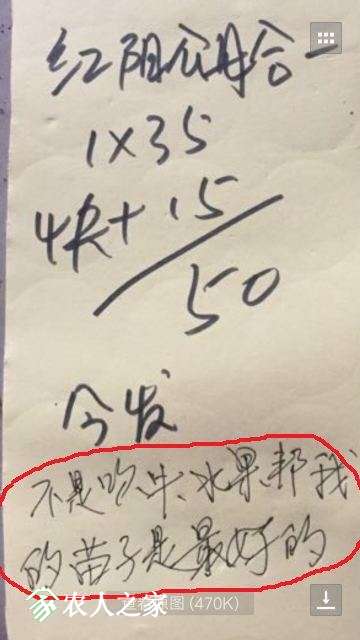 红阳公母合一
1×35
快+15
50
今发
不是吹牛、水果帮我
的苗子是最好的
农人之家
查看原图 (470K)